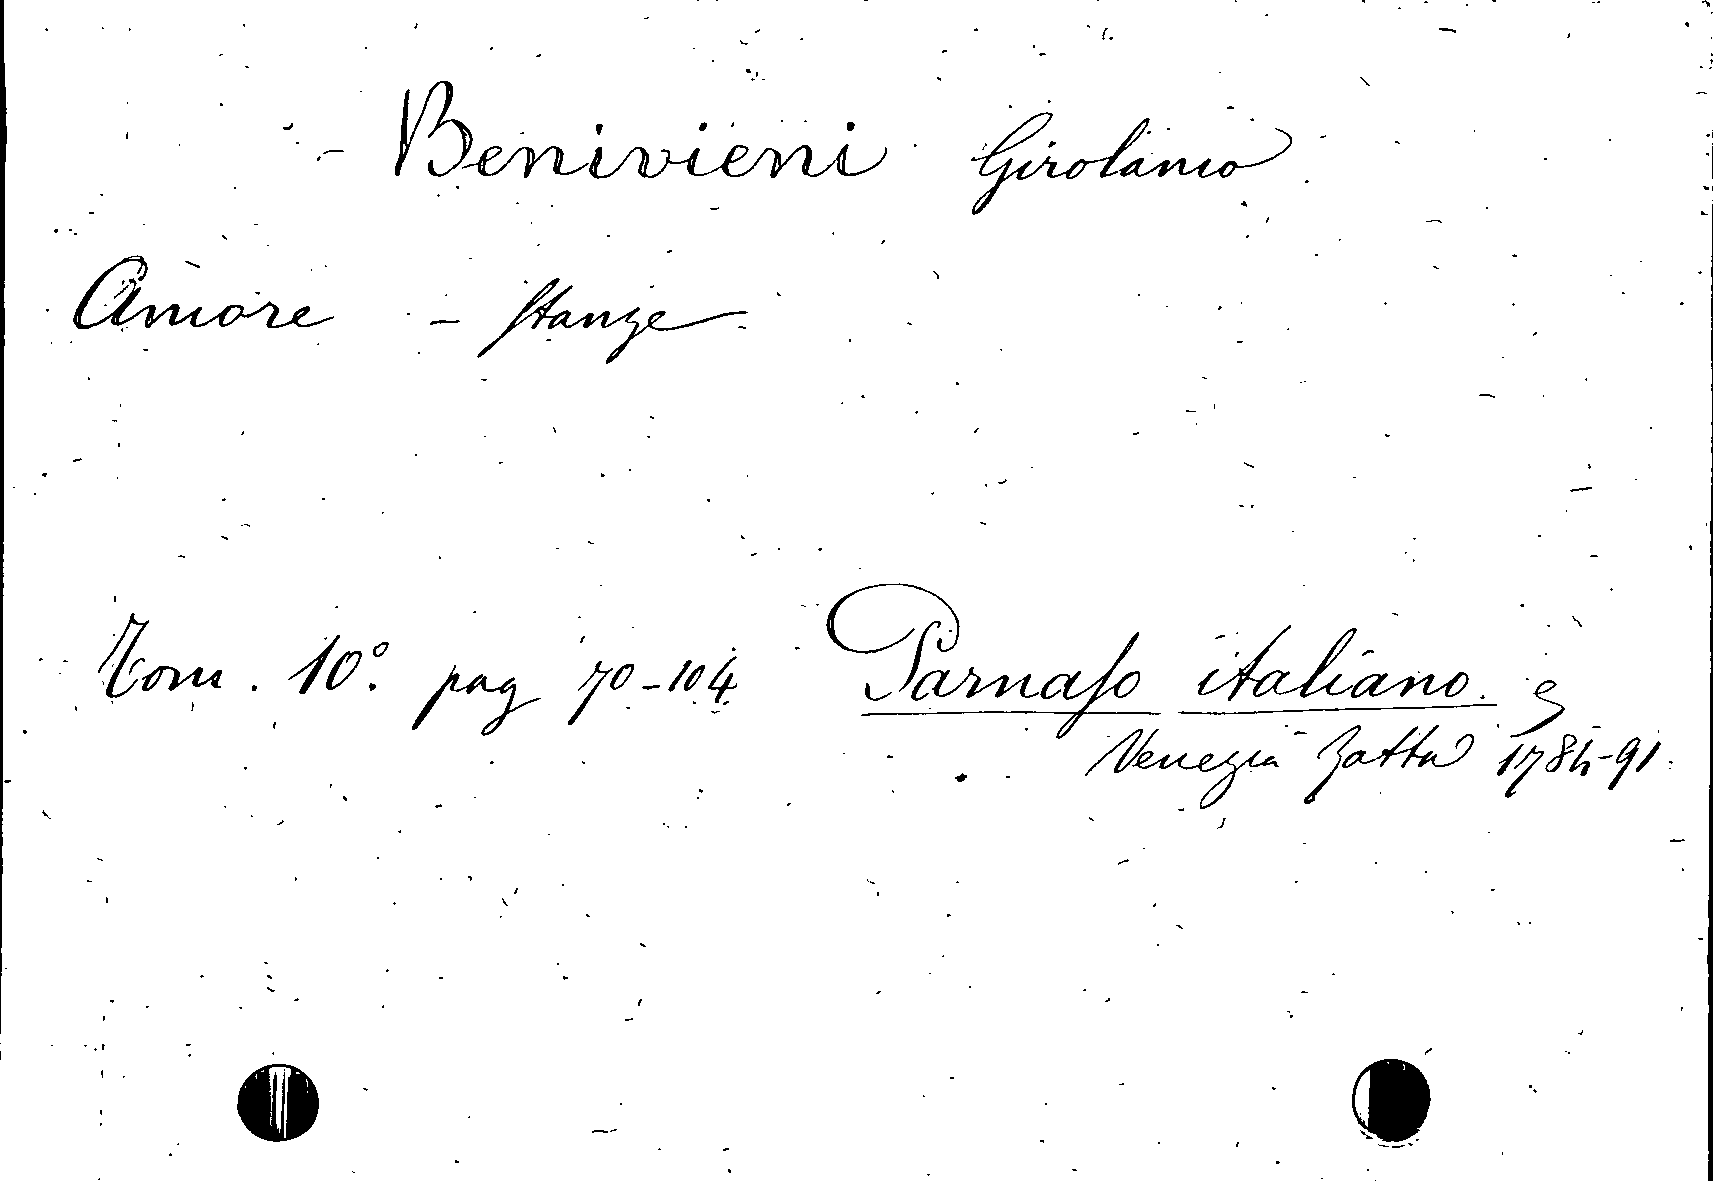 - Benivieni Girolamo
Amore - Stanze
Tom. 10º. pag 70-104 Parnaſo italiano.
Venezia Zatta 1784-91.